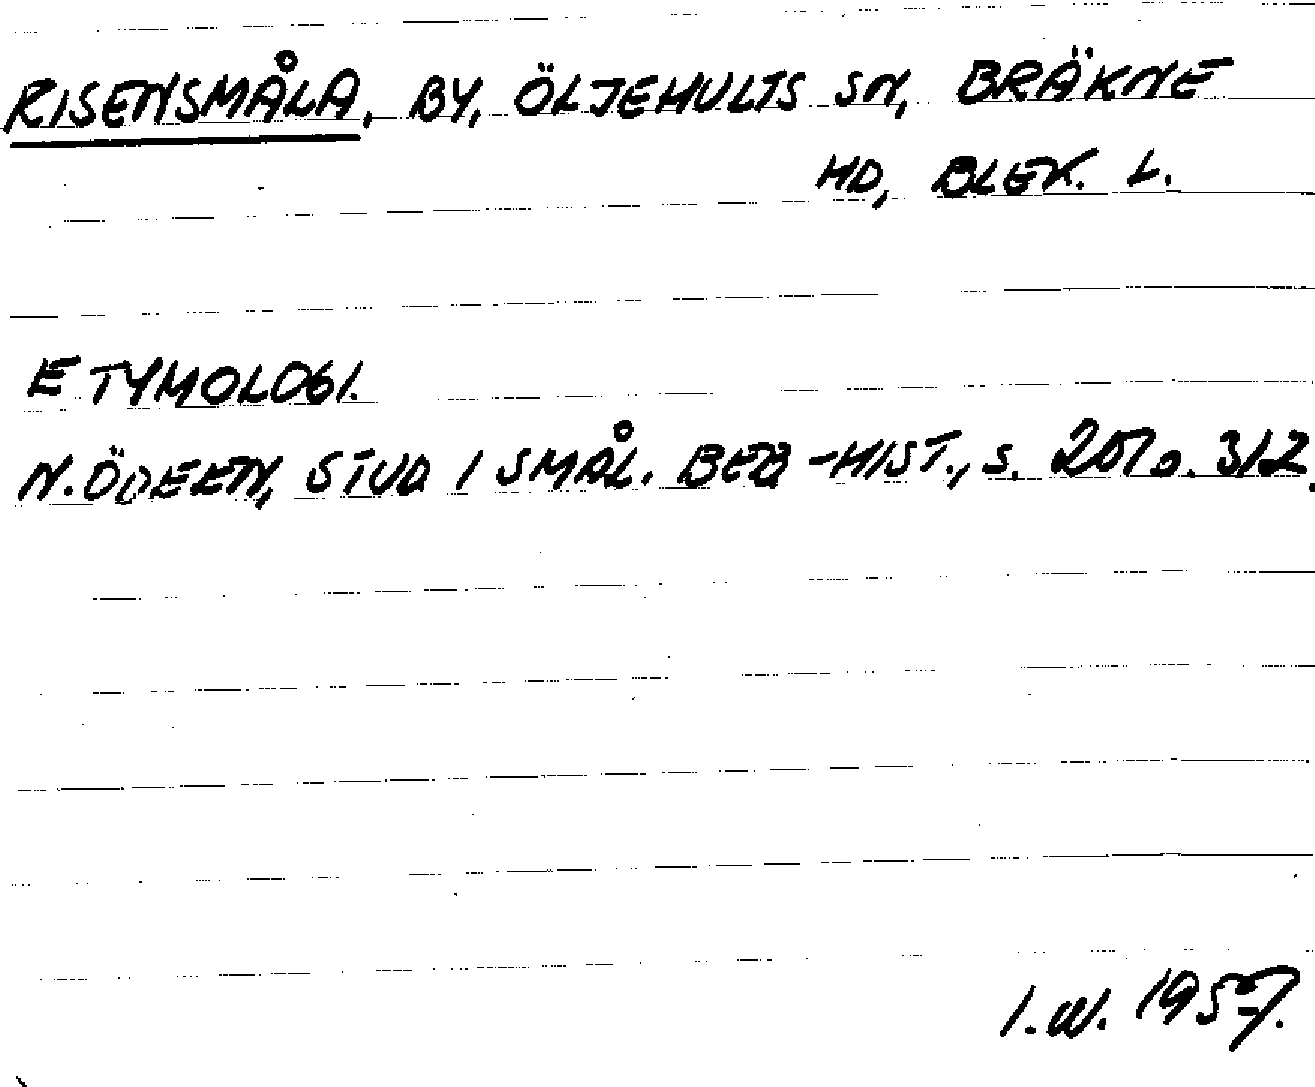 RISENSMÅLA, BY, ÖLJEHULTS SN, BRÄKNE
HD, BLEK. L.
ETYMOLOGI.
N. ÖDEEN, STUD I SMÅL. BEB-HIST., S. 207 o. 312.
I.W. 1957.